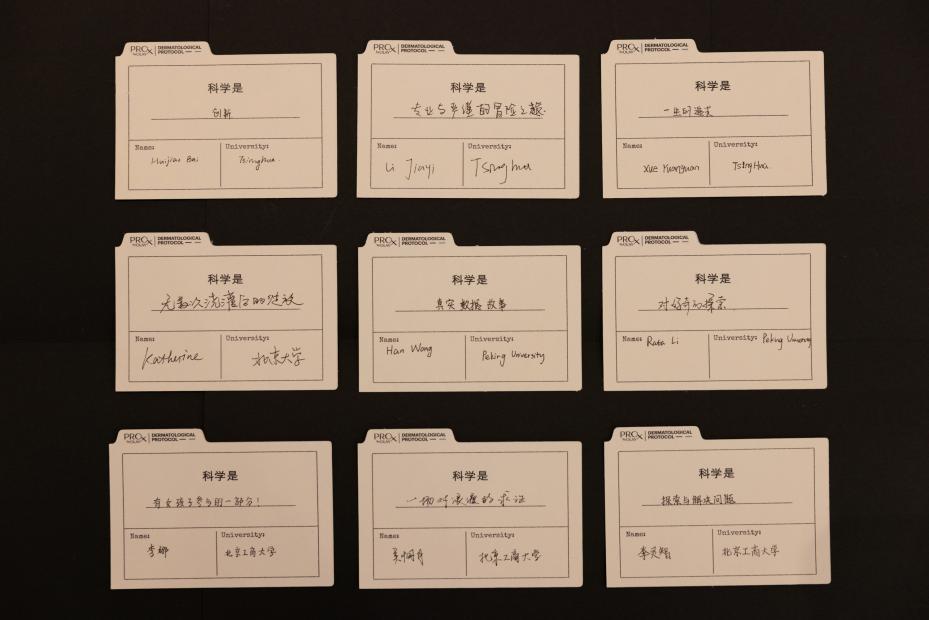 PROX
by OLAY
DERMATOLOGICAL
PROTOCOL
科学是
创新
Name:
University:
Huijiao Bai
Tsinghua.
PROX
by OLAY
DERMATOLOGICAL
PROTOCOL
科学是
专业与严谨的冒险之旅.
Name:
University:
Li Jiayi
Tsinghua
PROX
by OLAY
DERMATOLOGICAL
PROTOCOL
科学是
一生的追求
Name:
University:
Xue Yuanyuan
TsingHua.
PROX
by OLAY
DERMATOLOGICAL
PROTOCOL
科学是
无数次浇灌后的绽放
Name:
University:
Katherine
北京大学
PROX
by OLAY
DERMATOLOGICAL
PROTOCOL
科学是
真实数据故事
Name:
University:
Han Wang
Peking University
PROX
by OLAY
DERMATOLOGICAL
PROTOCOL
科学是
对好奇的探索
Name:
University:
Li
Peking University
PROX
by OLAY
DERMATOLOGICAL
PROTOCOL
科学是
有女孩子参与的一部分!
Name:
University:
李娜
北京工商大学
PROX
by OLAY
DERMATOLOGICAL
PROTOCOL
科学是
一场对浪漫的求证
Name:
University:
北京工商大学
PROX
by OLAY
DERMATOLOGICAL
PROTOCOL
科学是
探索与解决问题
Name:
University:
北京工商大学